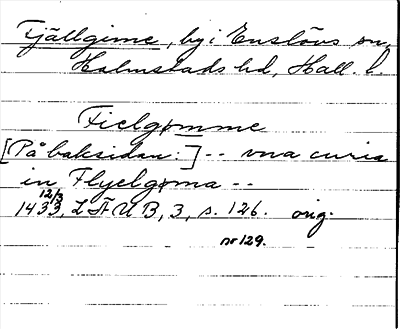 Fjällgime, by i Enslövs sn,
Halmstads hd, Hall. l.
Fielgømme
[På baksidan:] -- vna curia
in Flyelgøma --
1433 12/3, LÄUB, 3, s. 126. orig.
nr 129.